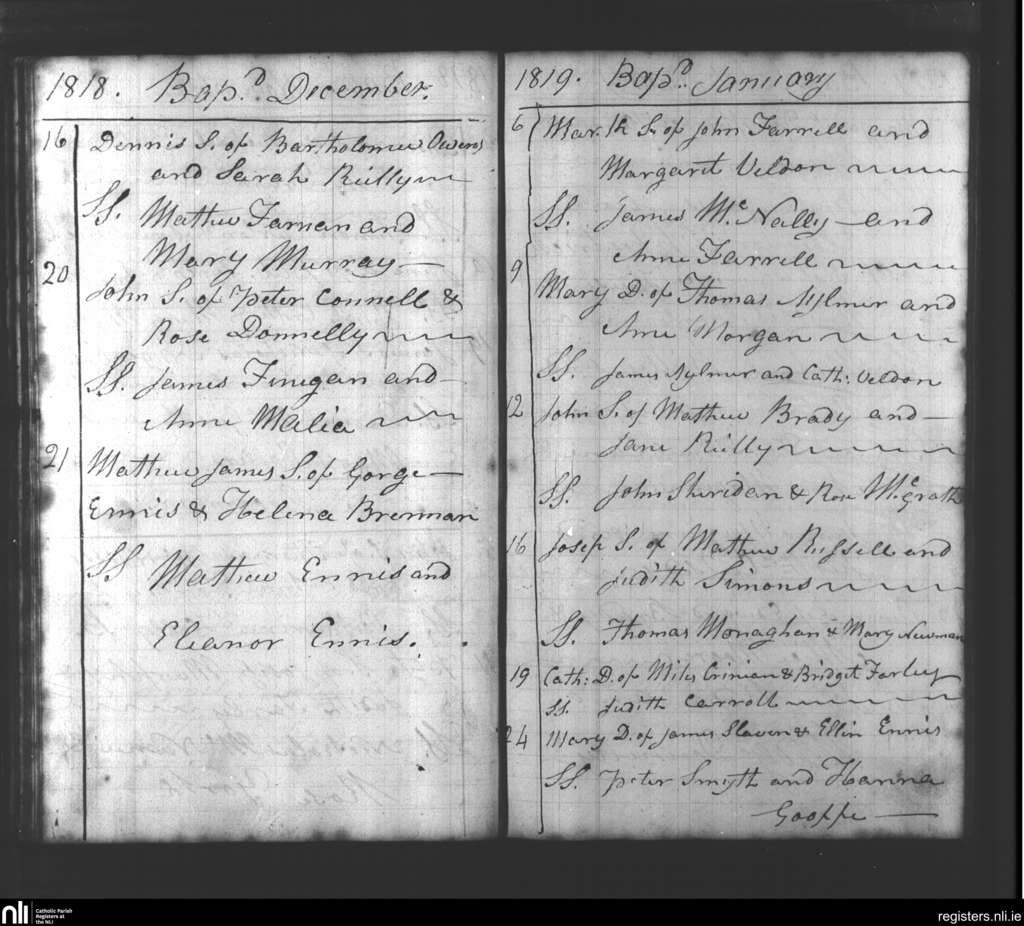 1818. Bap.d December.
16 Dennis S. of Bartholomew Owens
and Sarah Reilly
SS. Mathew Farnan and
Mary Murray
20 John S. of Peter Connell &
Rose Donnelly
SS. James Finegan and
Anne Malia
21 Mathew James S. of Gorge
Ennis & Helena Brennan
SS Mathew Ennis and
Eleanor Ennis.
1819. Bap.d January
6 Mark S. of John Farrell and
Margaret Veldon
SS. James Mc Nally and
Anne Farrell
9 Mary D. of Thomas Aylmer and
Anne Morgan
SS. James Aylmer and Cath: Veldon
12 John S. of Mathew Brady and
Jane Reilly
SS. John Sheridan & Rose McGrath
16 Josep S. of Mathew Russell and
Judith Simons
SS. Thomas Monaghan & Mary Newman
19 Cath: D. of Miles Crinian & Bridget Farley
SS. Judith Carroll
24 Mary D. of James Slaven & Ellin Ennis
SS. Peter Smyth and Hanna
nli Catholic Parish
Registers at
the NLI
registers.nli.ie